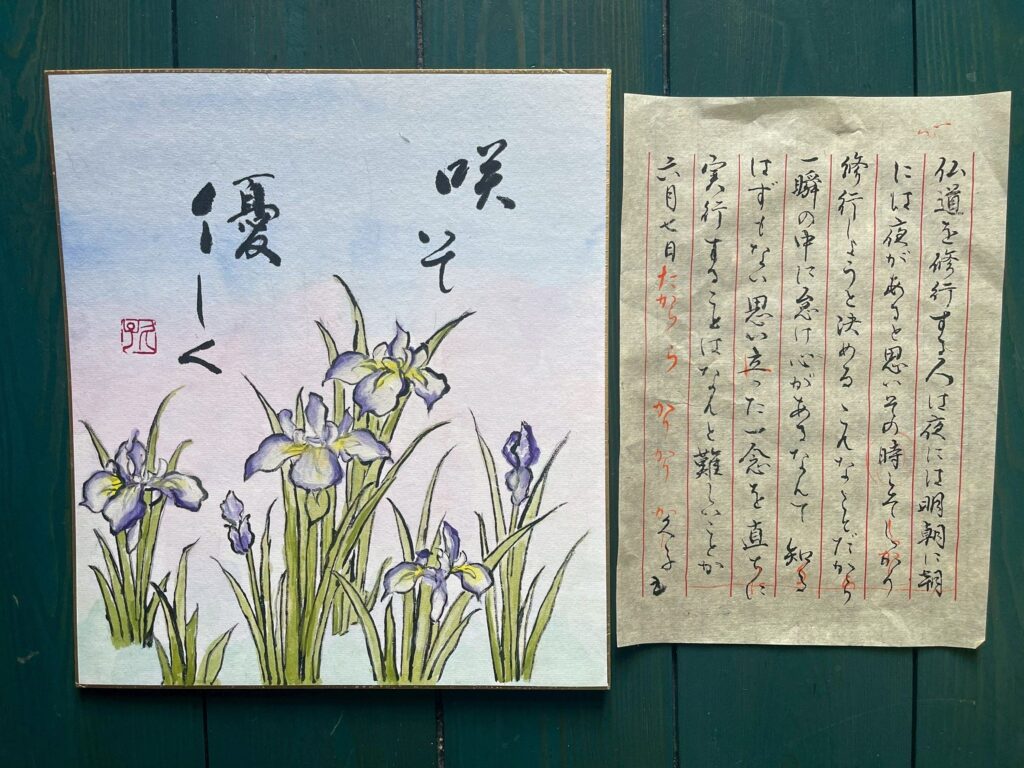 咲いて
優しく
仏道を修行する人は夜には明朝に朝
には夜があると思いその時こそしっかり
修行しようと決めるこんなことだから
一瞬の中に怠け心があるなんて知る
はずもない思い立った一念を直ちに
実行することはなんと難しいことか
六月七日 たから ら かり かり か 久子